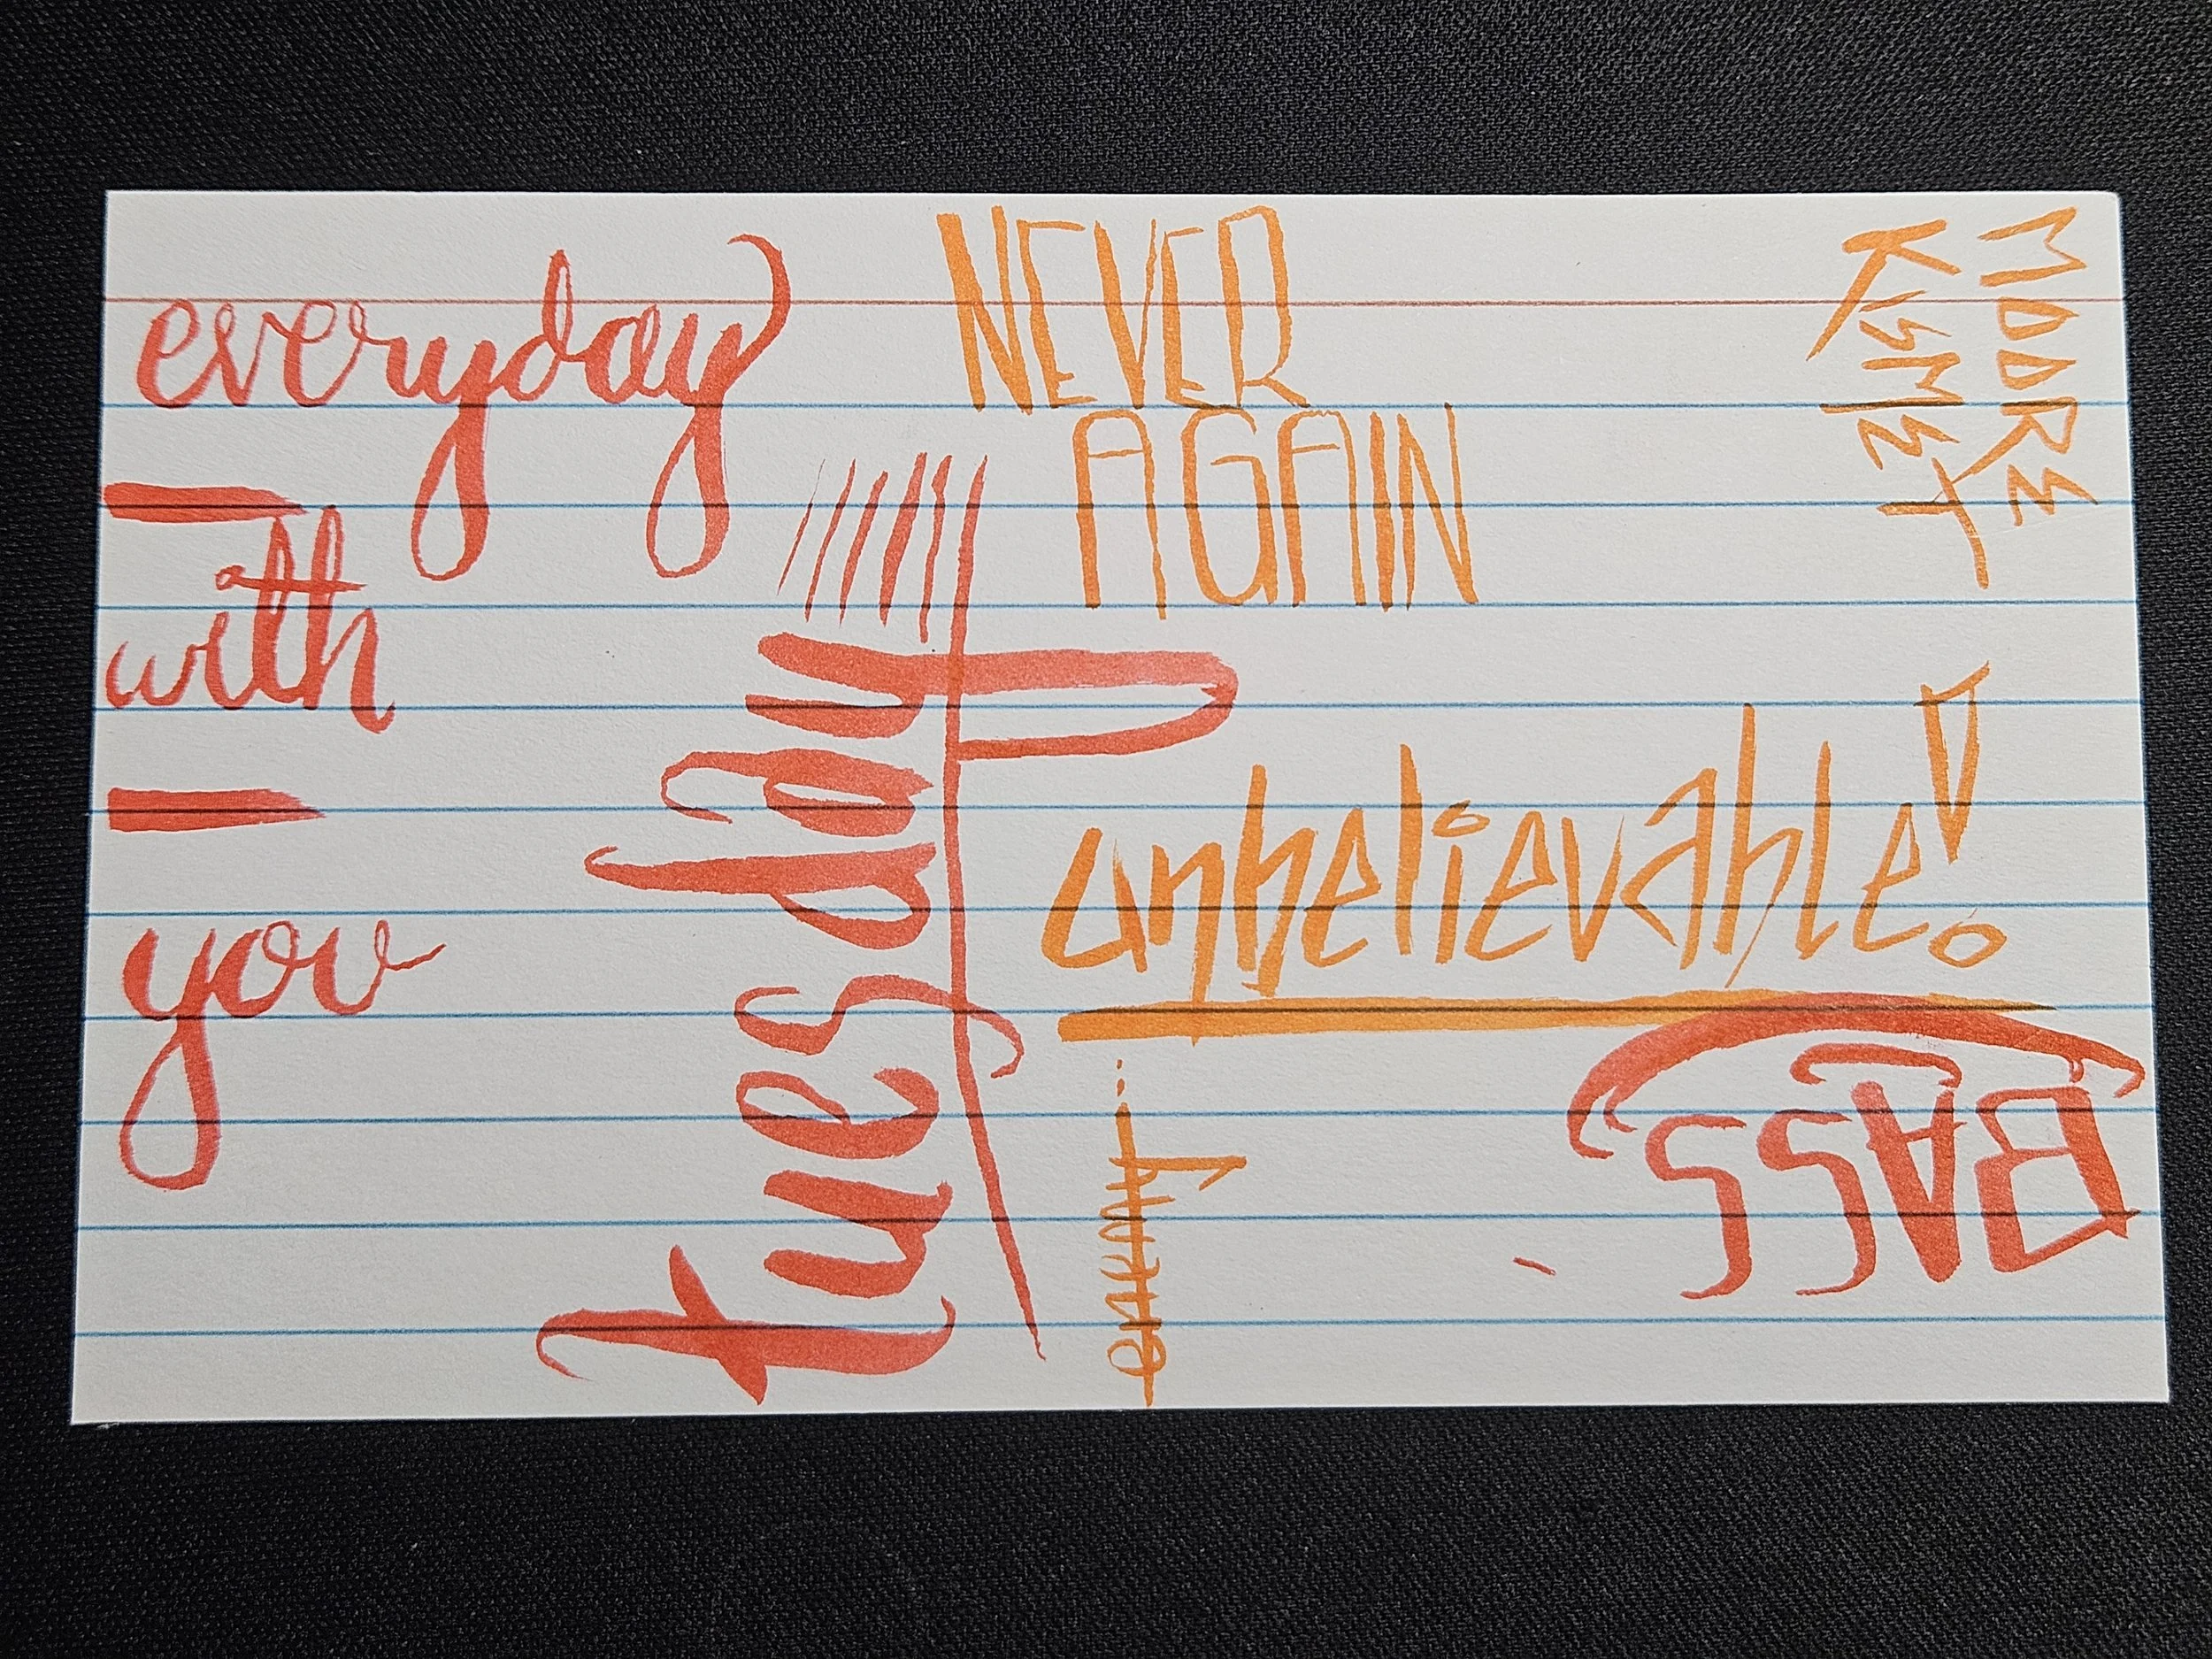 everyday
with
you
tuesday
NEVER
AGAIN
MOORE
KISMET
unbelievable!
BASS